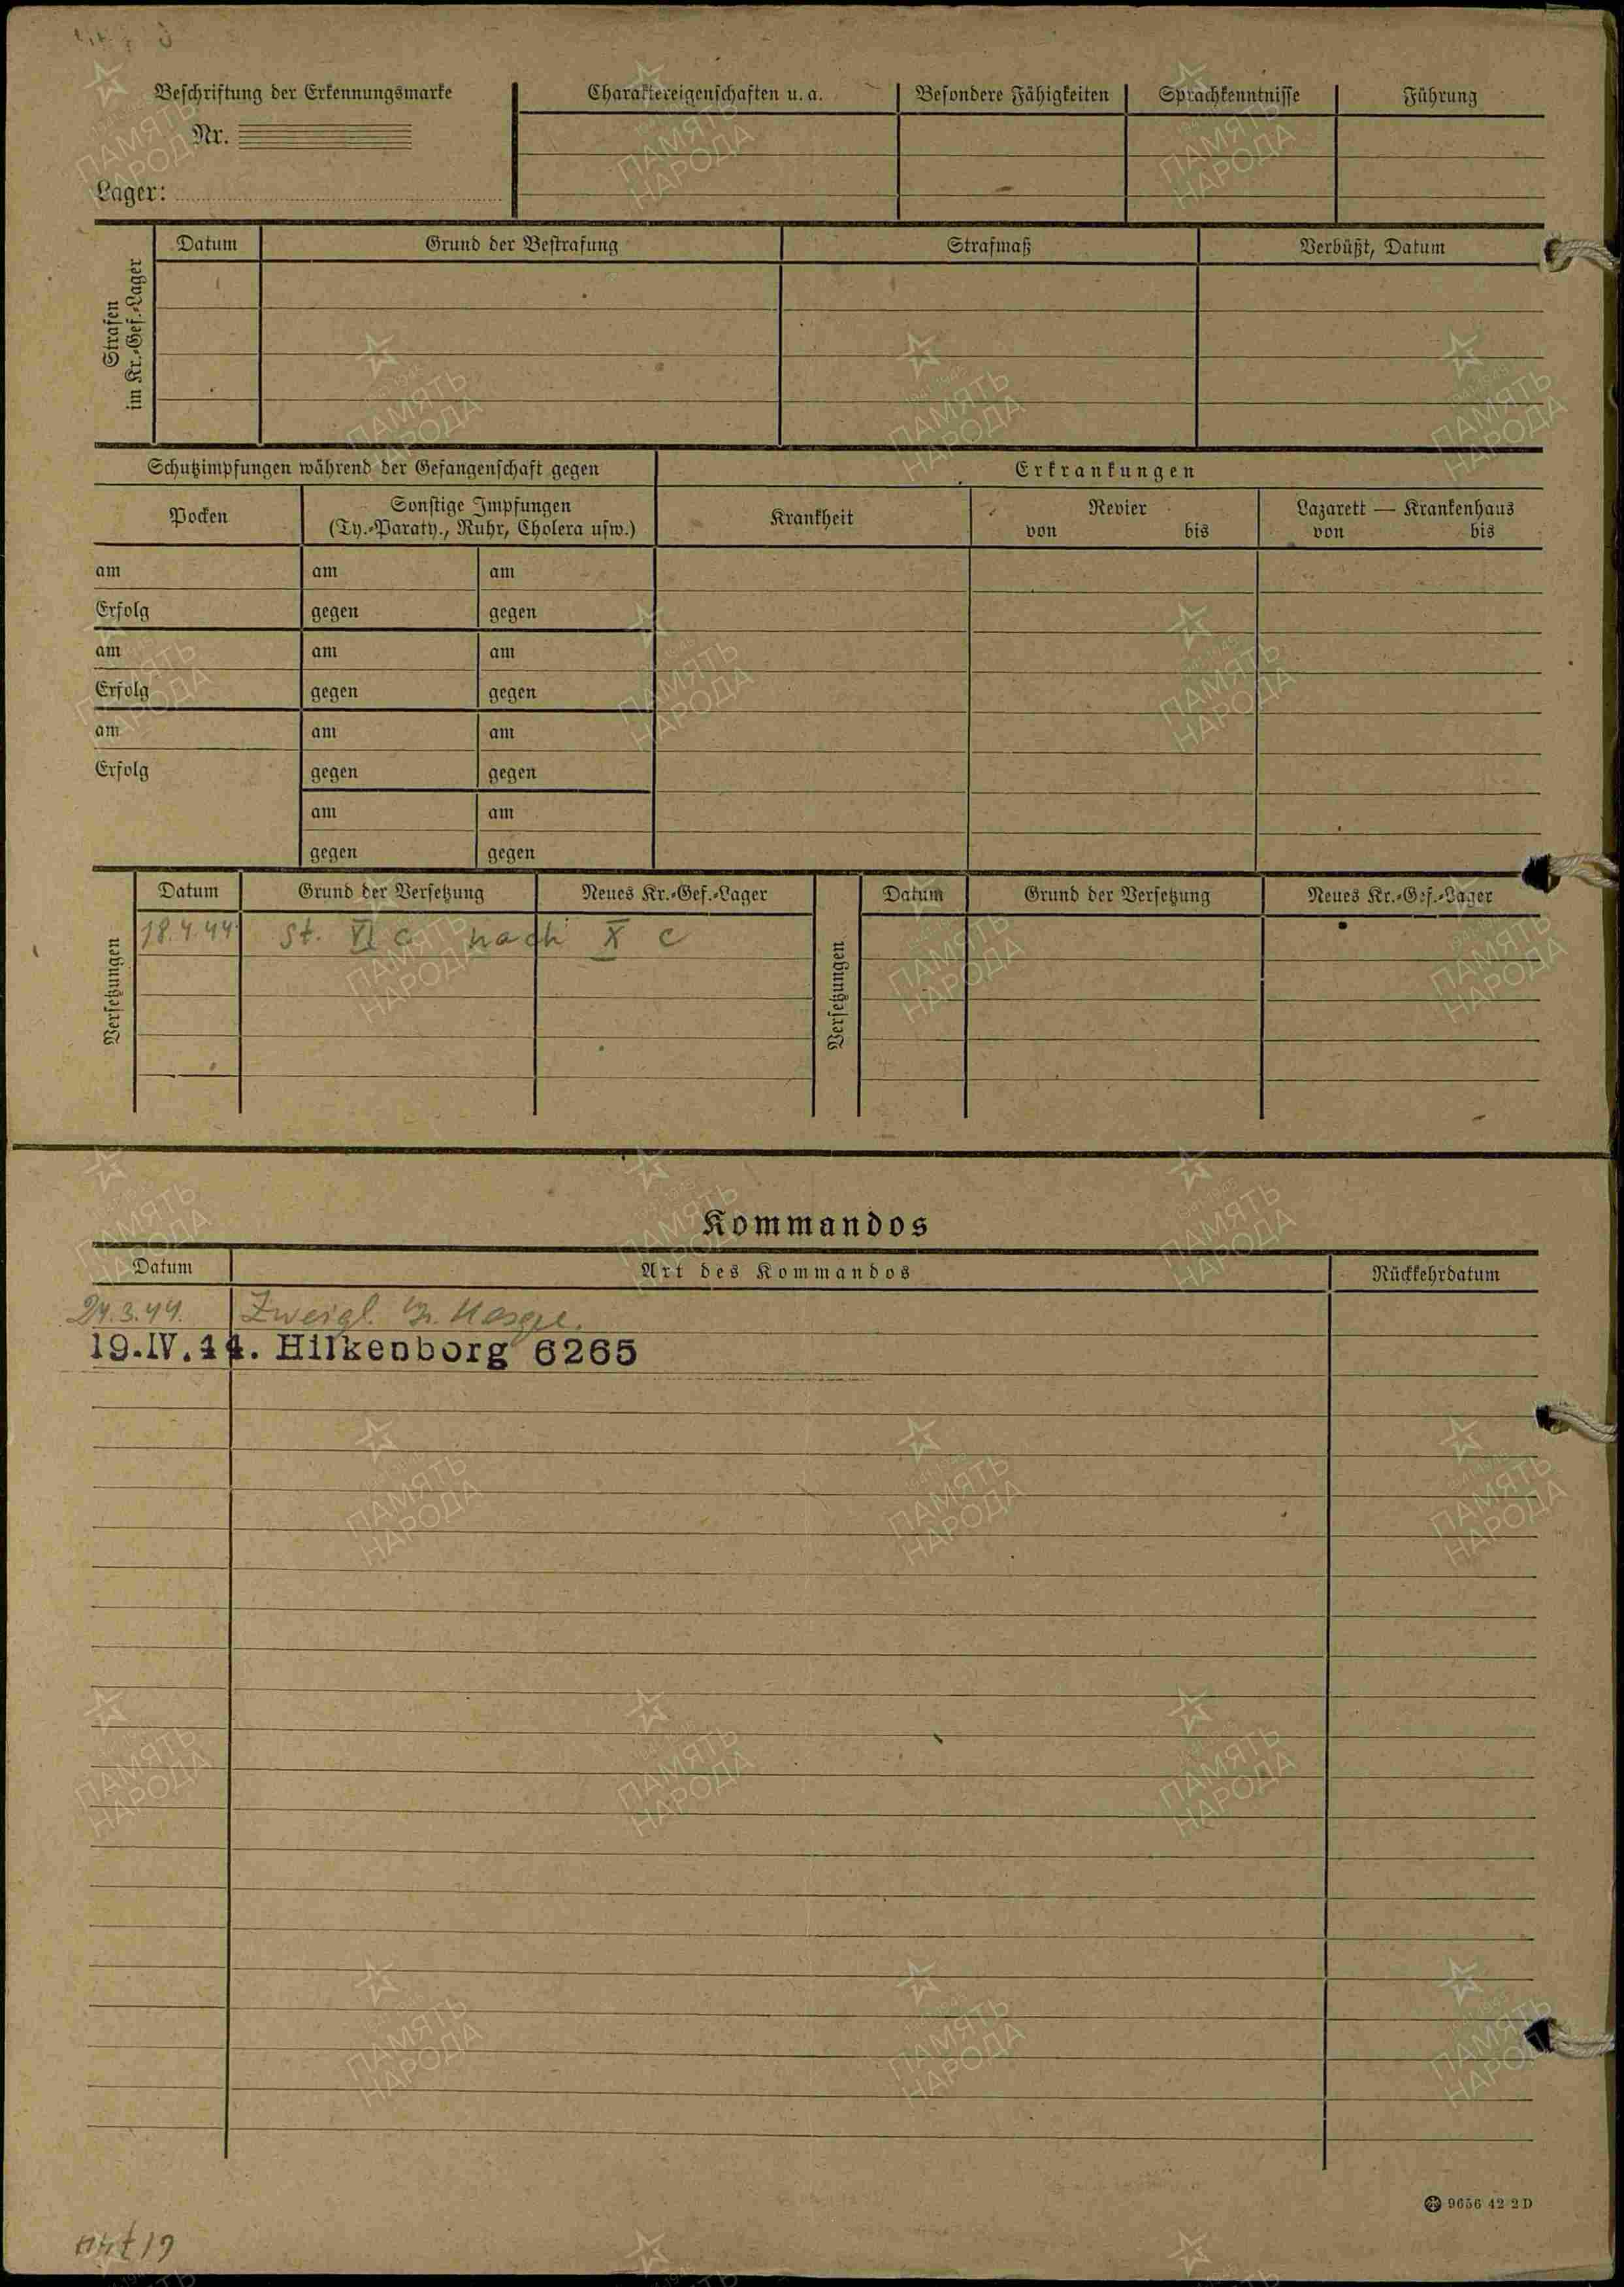 Beschriftung der Erkennungsmarke
Nr.
Lager:
Charaktereigenschaften u. a.
Besondere Fähigkeiten
Sprachkenntnisse
Führung
Strafen
im Kr.-Gef.-Lager
Datum
Grund der Bestrafung
Strafmaß
Verbüßt, Datum
Schutzimpfungen während der Gefangenschaft gegen
Erkrankungen
Pocken
Sonstige Impfungen
(Ty.-Paraty., Ruhr, Cholera usw.)
Krankheit
Revier
von bis
Lazarett — Krankenhaus
von bis
am am am
Erfolg gegen gegen
am am am
Erfolg gegen gegen
am am am
Erfolg gegen gegen
am am
gegen gegen
Versetzungen
Datum Grund der Versetzung Neues Kr.-Gef.-Lager
18.4.44 St. VI c nach X c
Versetzungen
Datum Grund der Versetzung Neues Kr.-Gef.-Lager
Kommandos
Datum Art des Kommandos Rückkehrdatum
24.3.44. Zweigl.
19.IV.44. Hilkenborg 6265
9656 42 2 D
ПАМЯТЬ
НАРОДА
1941-1945